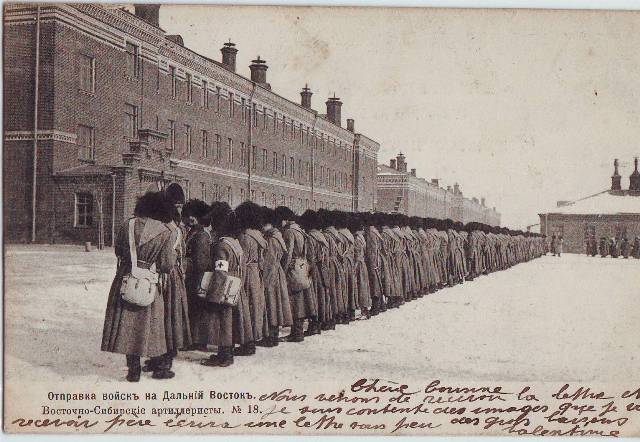 Отправка войскъ на Дальній Востокъ.
Восточно-Сибирскіе артиллеристы. № 18.
Chère bonnne
Nous venons de recevoir la lettre
je suis contente des images que je
recevoir père écrira une lettre sous peu des gros baisers
Valentine